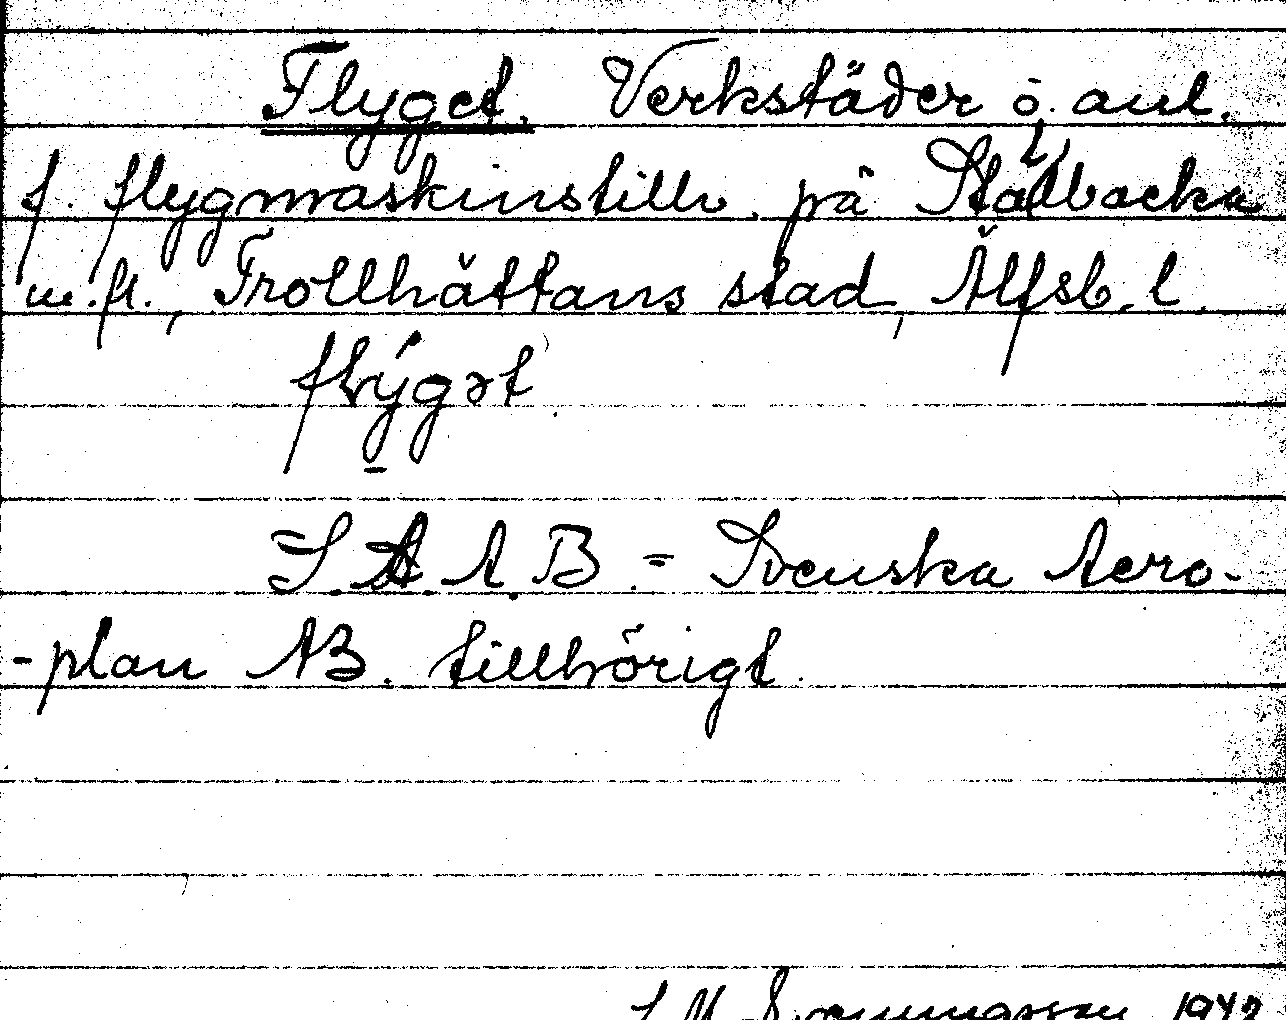 Flyget. Verkstäder o. anl.
f. flygmaskinstillv. på Stallbacka
m.fl., Trollhättans stad, Älfsb. l.
flýgət
S.A.A.B. = Svenska Aero-
-plan AB. tillhörigt.
1942